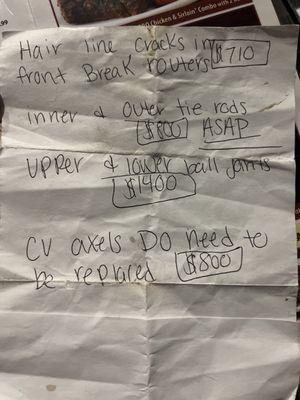 .99
Chicken & Sirloin* Combo with 2
Hair line cracks in $710
front Break routers
inner & outer tie rods
$800 ASAP
upper & lower ball joints
$1400
CV axels DO need to
be replaced $800